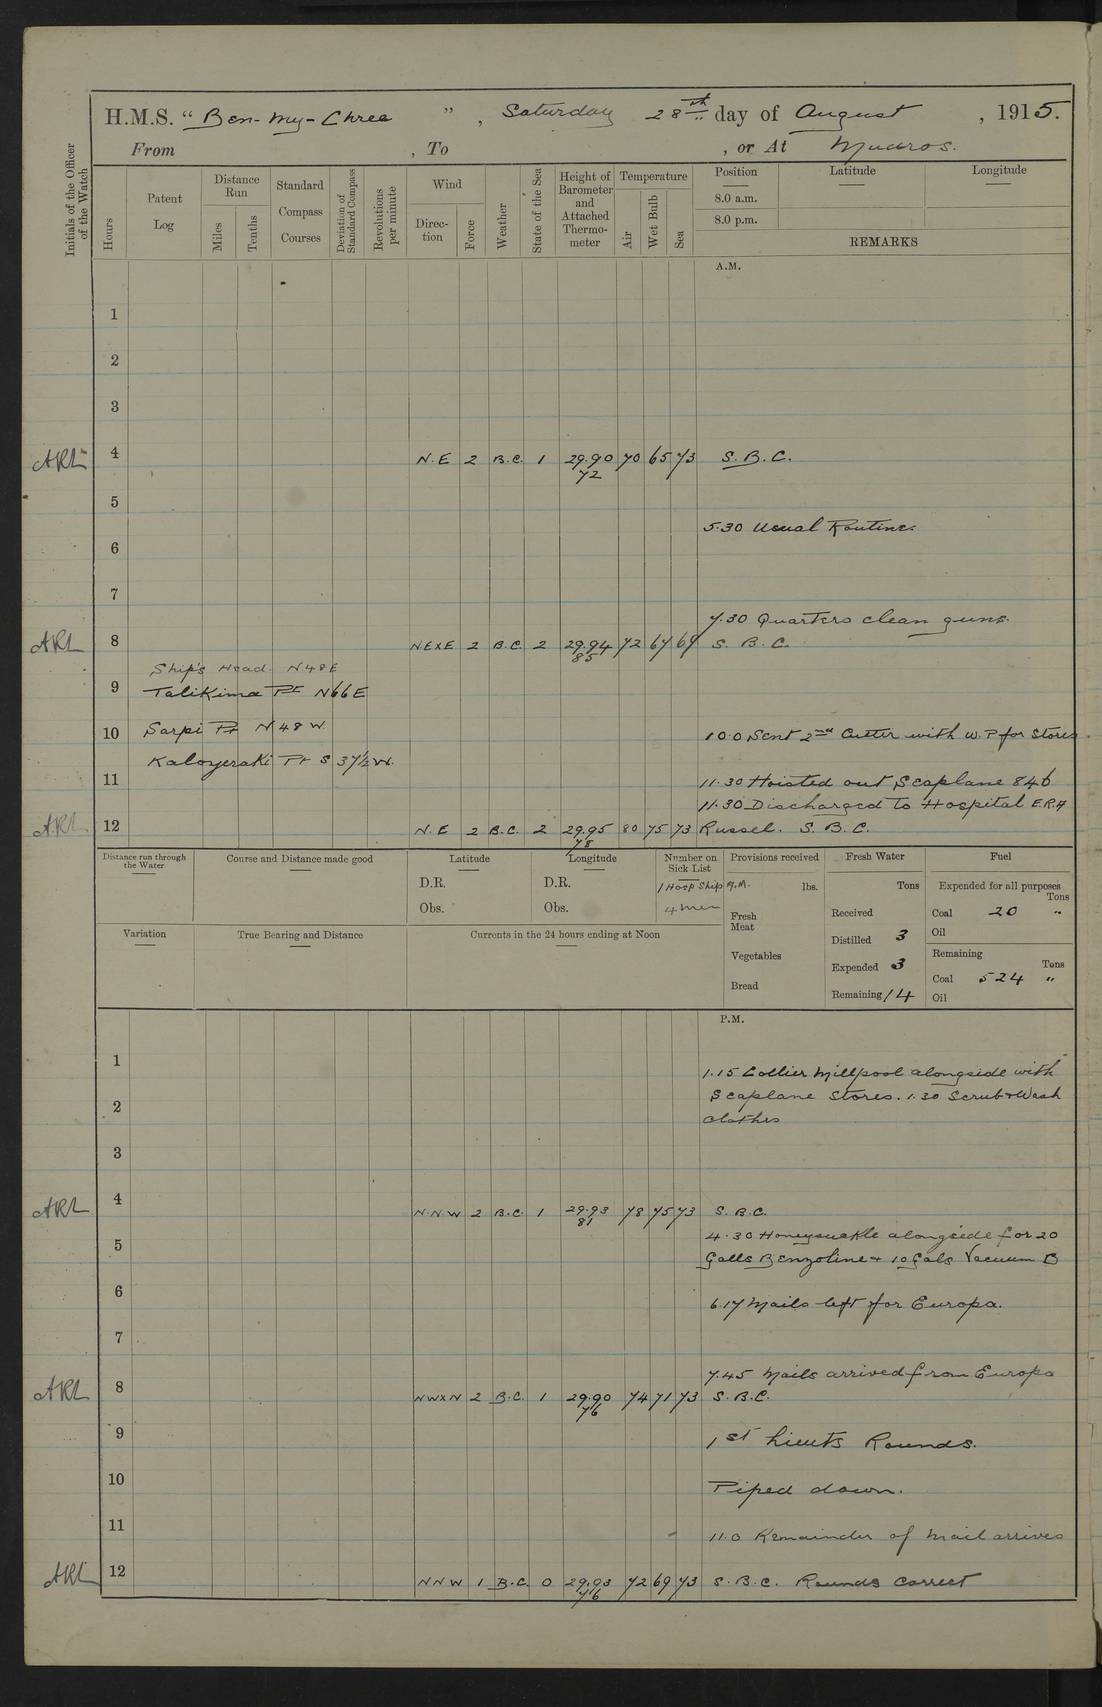 H.M.S. “Ben-my-Chree”, Saturday 28th day of August, 1915.
From , To , or At Mudros.
Initials of the Officer of the Watch
Hours
Patent Log
Distance Run
Miles
Tenths
Standard Compass Courses
Deviation of Standard Compass
Revolutions per minute
Wind
Direction
Force
Weather
State of the Sea
Height of Barometer and Attached Thermometer
Temperature
Air
Wet Bulb
Sea
Position Latitude Longitude
8.0 a.m.
8.0 p.m.
REMARKS
A.M.
1
2
3
ARL 4 N.E 2 B.C. 1 29.90 70 65 73 S.B.C.
72
5
5.30 Usual Routine.
6
7
7.30 Quarters clean guns.
ARL 8 NExE 2 B.C. 2 29.94 72 67 69 S.B.C.
85
Ship's Head N48E
9 Talikima Pt N66E
10 Sarpi Pt N48W
10.0 Sent 2nd Cutter with W.P for Stores.
Kaloyeraki Pt S 37½W.
11 11.30 Hoisted out Seaplane 846
11.30 Discharged to Hospital E.R.A
ARL 12 N.E 2 B.C. 2 29.95 80 75 73 Russel. S.B.C.
78
Distance run through the Water
Course and Distance made good
Latitude
D.R.
Obs.
Longitude
D.R.
Obs.
Number on Sick List
1 Hosp Ship
4 men
Provisions received
lbs.
Fresh Meat
Vegetables
Bread
Fresh Water
Tons
Received
Distilled 3
Expended 3
Remaining 14
Fuel
Expended for all purposes
Tons
Coal 20 "
Oil
Remaining
Tons
Coal 524 "
Oil
Variation
True Bearing and Distance
Currents in the 24 hours ending at Noon
P.M.
1
1.15 Collier Millpool alongside with
2 Seaplane Stores. 1.30 Scrub & Wash
clothes
3
ARL 4 N.N.W 2 B.C. 1 29.93 78 75 73 S.B.C.
81
4.30 Honeysuckle alongside for 20
5 Galls Benzoline & 10 Gals Vacuum
6
6.17 Mails left for Europa.
7
7.45 Mails arrived from Europa
ARL 8 NWxN 2 B.C. 1 29.90 74 71 73 S.B.C.
76
9
1st Lieuts Rounds.
10
Piped down.
11
11.0 Remainder of Mail arrives
ARL 12 NNW 1 B.C. 0 29.93 72 69 73 S.B.C. Rounds Correct
76